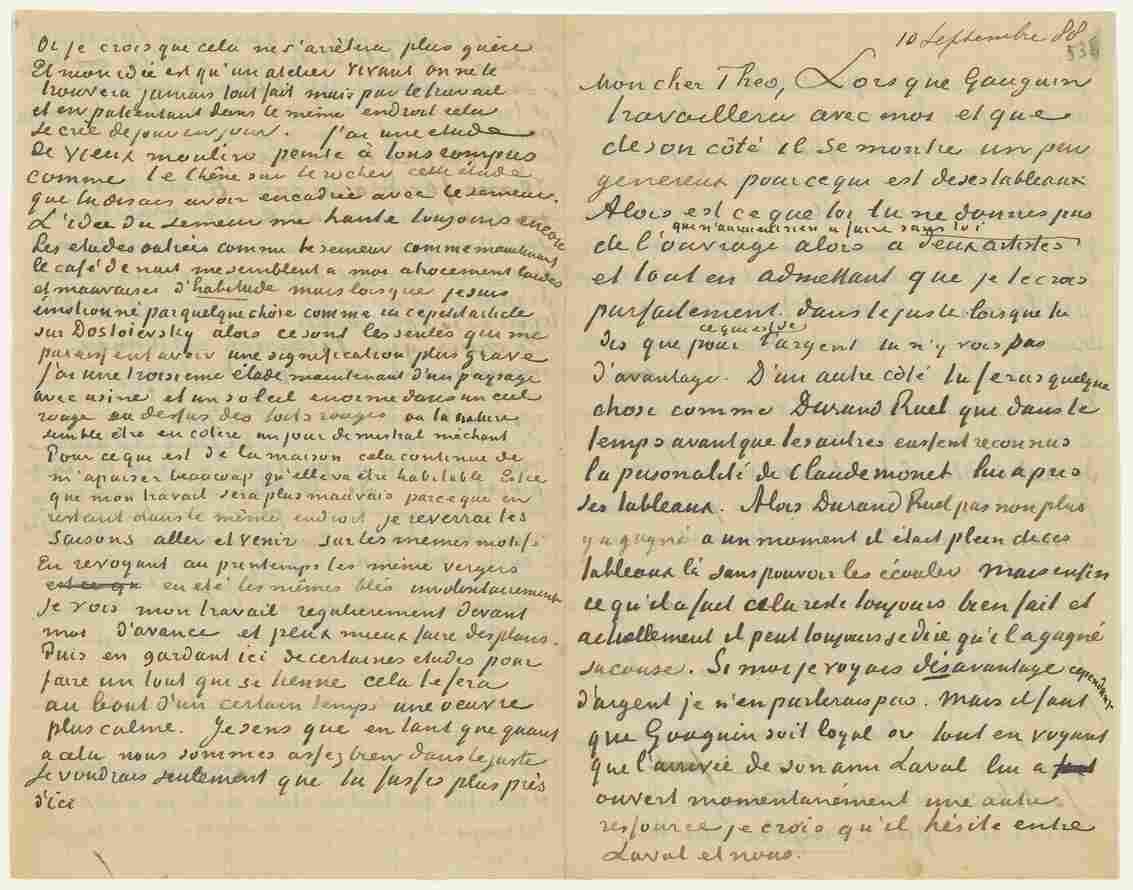 Or je crois que cela ne s'arrêtera plus guère
Et mon idée est qu'un atelier vivant on ne le
trouvera jamais tout fait mais par le travail
et en patientant dans le même endroit cela
se crée de jour en jour. J'ai une etude
de vieux moulin peinte à tons rompus
comme le chêne sur le rocher cette étude
que tu disais avoir encadrée avec le semeur.
L'idée du semeur me hante toujours encore
Les etudes outrées comme le semeur comme maintenant
le café de nuit me semblent a moi atrocement laides
et mauvaises d'habitude mais lorsque je suis
émotionné par quelque chose comme ici ce petit article
sur Dostoievsky alors ce sont les seules qui me
paraissent avoir une signification plus grave
J'ai une troisieme étude maintenant d'un paysage
avec usine et un soleil enorme dans un ciel
rouge au dessus des toits rouges ou la nature
semble être en colère un jour de mistral méchant
Pour ce qui est de la maison cela continue de
m'apaiser beaucoup qu'elle va être habitable Est ce
que mon travail sera plus mauvais parce que en
restant dans le même endroit je reverrai les
saisons aller et venir sur les memes motifs
En revoyant au printemps les même vergers
est ce qu en eté les mêmes blés involontairement
Je vois mon travail regulierement devant
moi d'avance et peux mieux faire des plans.
Puis en gardant ici de certaines etudes pour
faire un tout qui se tienne cela te fera
au bout d'un certain temps une oeuvre
plus calme. Je sens que en tant que quant
a cela nous sommes assez bien dans le juste
Je voudrais seulement que tu fusses plus près
d'ici
10 Septembre 88
538
Mon cher Theo, Lorsque Gauguin
travaillera avec moi et que
de son côté il se montre un peu
genereux pour ce qui est de ses tableaux
Alors est ce que toi tu ne donnes pas
qui n'auraient rien a faire sans toi
de l'ouvrage alors a deux artistes
et tout en admettant que je te crois
parfaitement dans le juste lorsque tu
ce qui est de
dis que pour l'argent tu n'y vois pas
d'avantage. D'un autre côté tu feras quelque
chose comme Durand Ruel qui dans le
temps avant que les autres eussent reconnus
la personalité de Claude monet lui a pris
ses tableaux. Alors Durand Ruel pas non plus
y a gagné a un moment il était plein de ces
tableaux là sans pouvoir les écouler Mais enfin
ce qu'il a fait cela reste toujours bien fait et
actuellement il peut toujours se dire qu'il a gagné
sa cause. Si moi je voyais désavantage cependant
d'argent je n'en parlerais pas. Mais il faut
que Gauguin soit loyal or tout en voyant
que l'arrivée de son ami Laval lui a fait
ouvert momentanément une autre
ressource je crois qu'il hésite entre
Laval et nous.